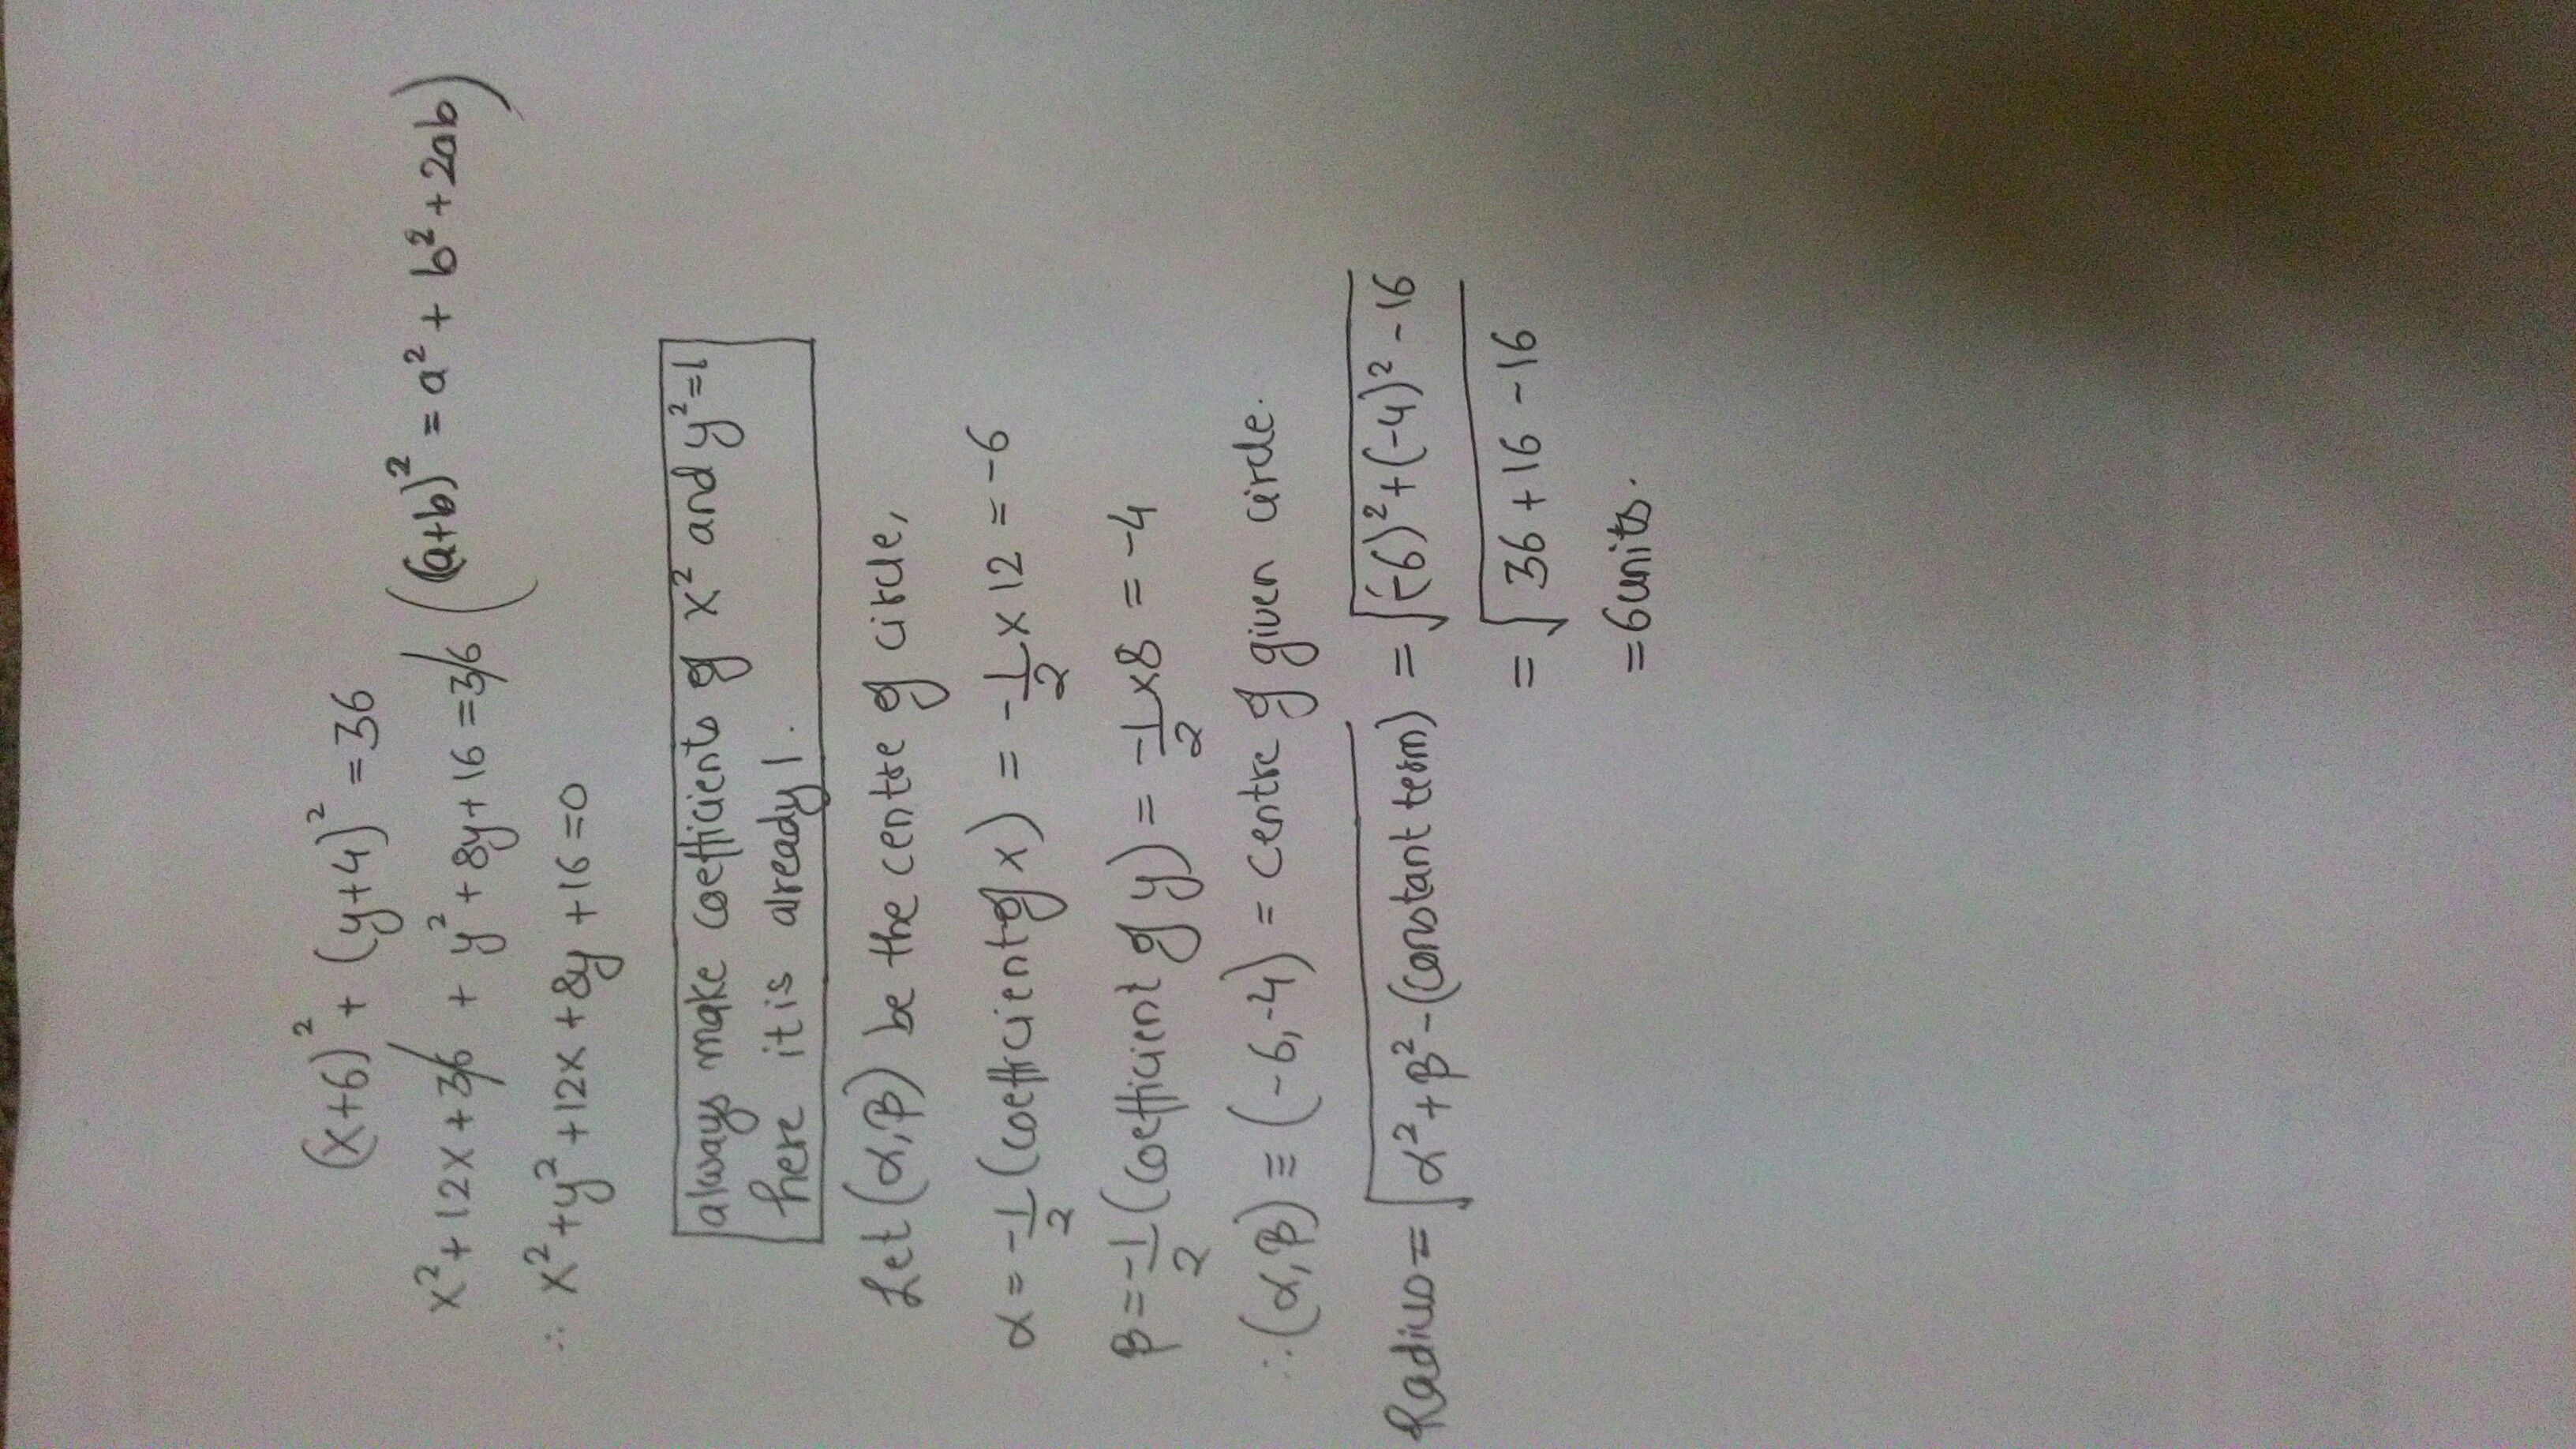 (x+6)² + (y+4)² = 36
x² + 12x + 36 + y² + 8y + 16 = 36 ((a+b)² = a² + b² + 2ab)
∴ x² + y² + 12x + 8y + 16 = 0
always make coefficients of x² and y² = 1
here it is already 1.
Let (α, β) be the centre of circle,
α = -1/2 (coefficient of x) = -1/2 × 12 = -6
β = -1/2 (coefficient of y) = -1/2 × 8 = -4
∴ (α, β) ≡ (-6, -4) = centre of given circle.
Radius = √(α² + β² - (constant term)) = √((-6)² + (-4)² - 16)
= √(36 + 16 - 16)
= 6 units.